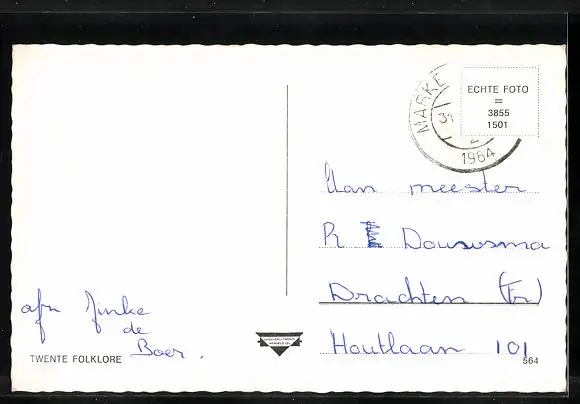 MARKE
31
1964
ECHTE FOTO
=
3855
1501
Aan meester
R Dousuma
Drachten (Fr)
Houtlaan 101
afz Jinke
de
Boer.
TWENTE FOLKLORE
564